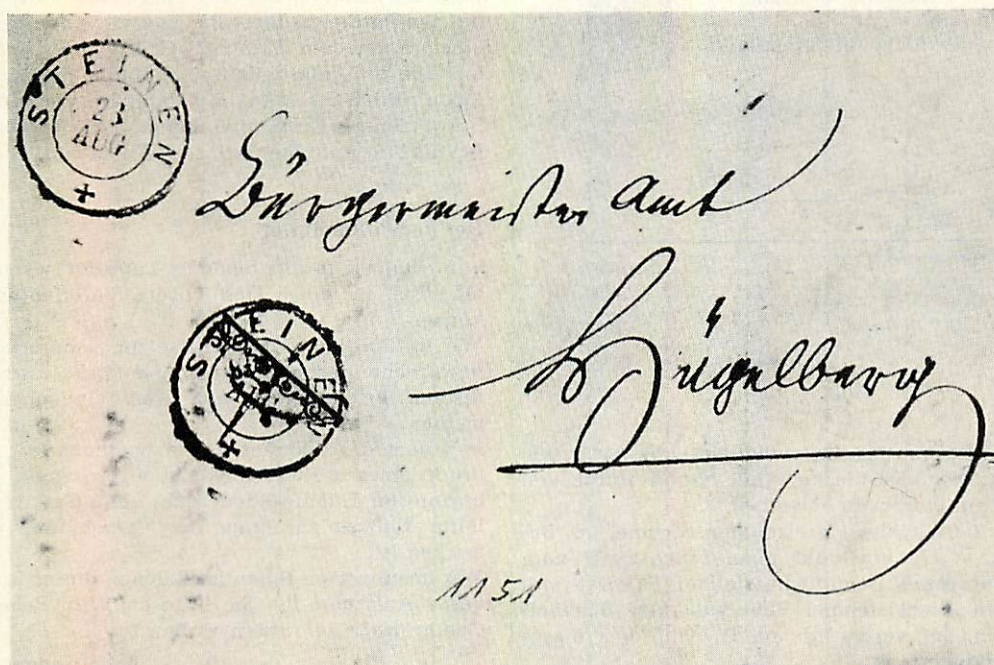 STEINEN
23
AUG
+
Bürgermeister Amt
STEINEN
+
Hügelberg
1151